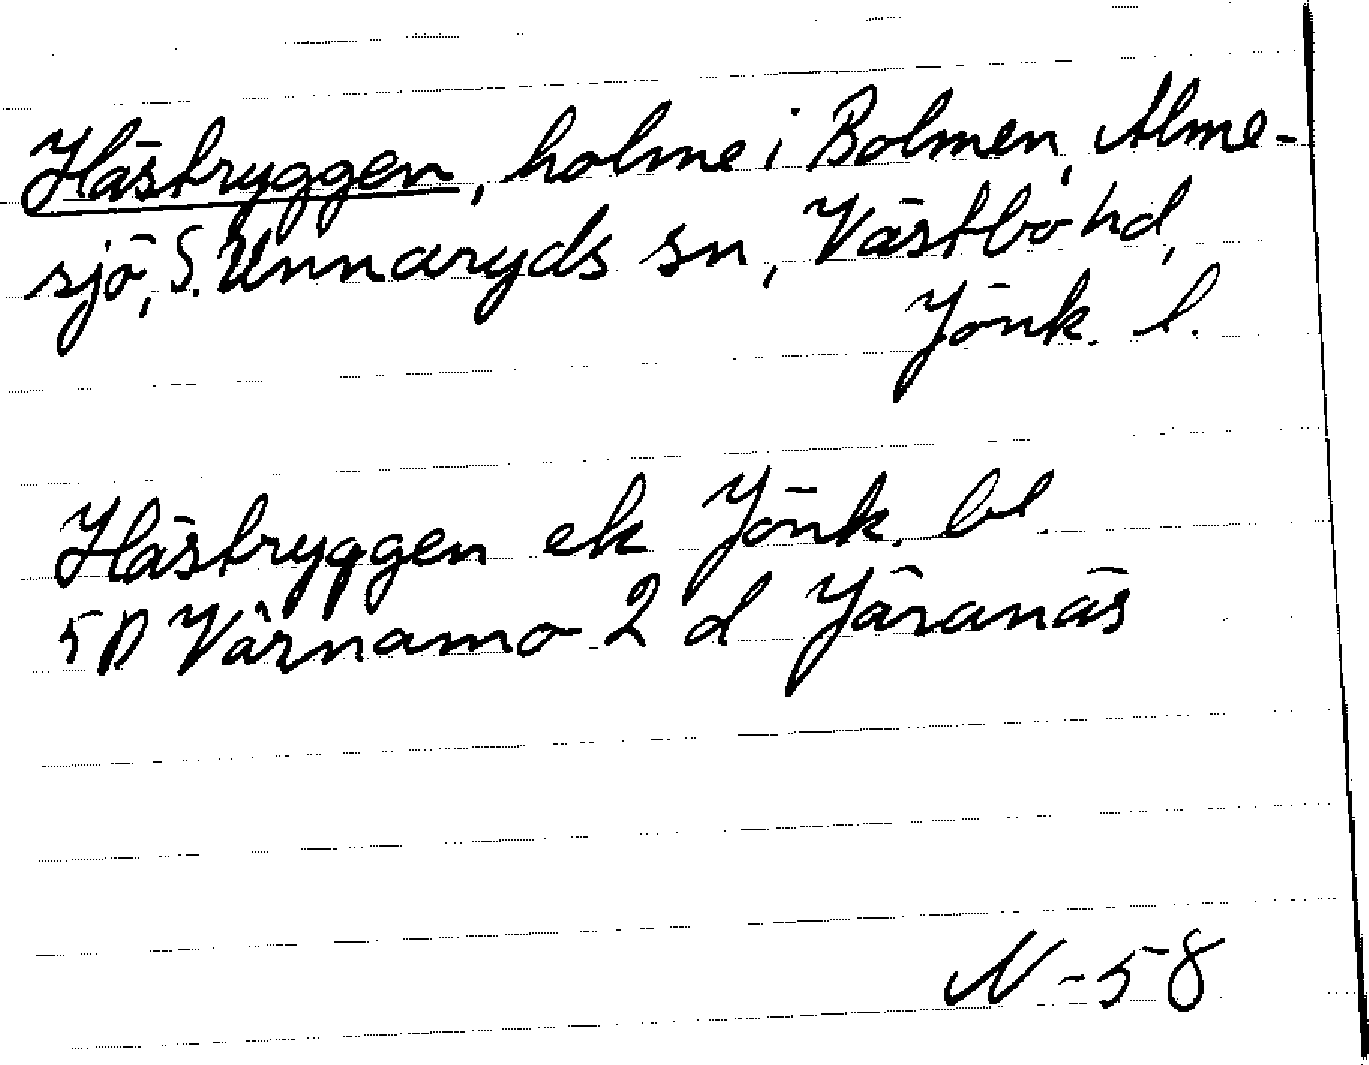 Hästryggen, holme i Bolmen, Alme-
sjö, S. Unnaryds sn, Västbo hd,
Jönk. l.
Hästryggen ek Jönk. bl
5D Värnamo 2 d Järanäs
N-58